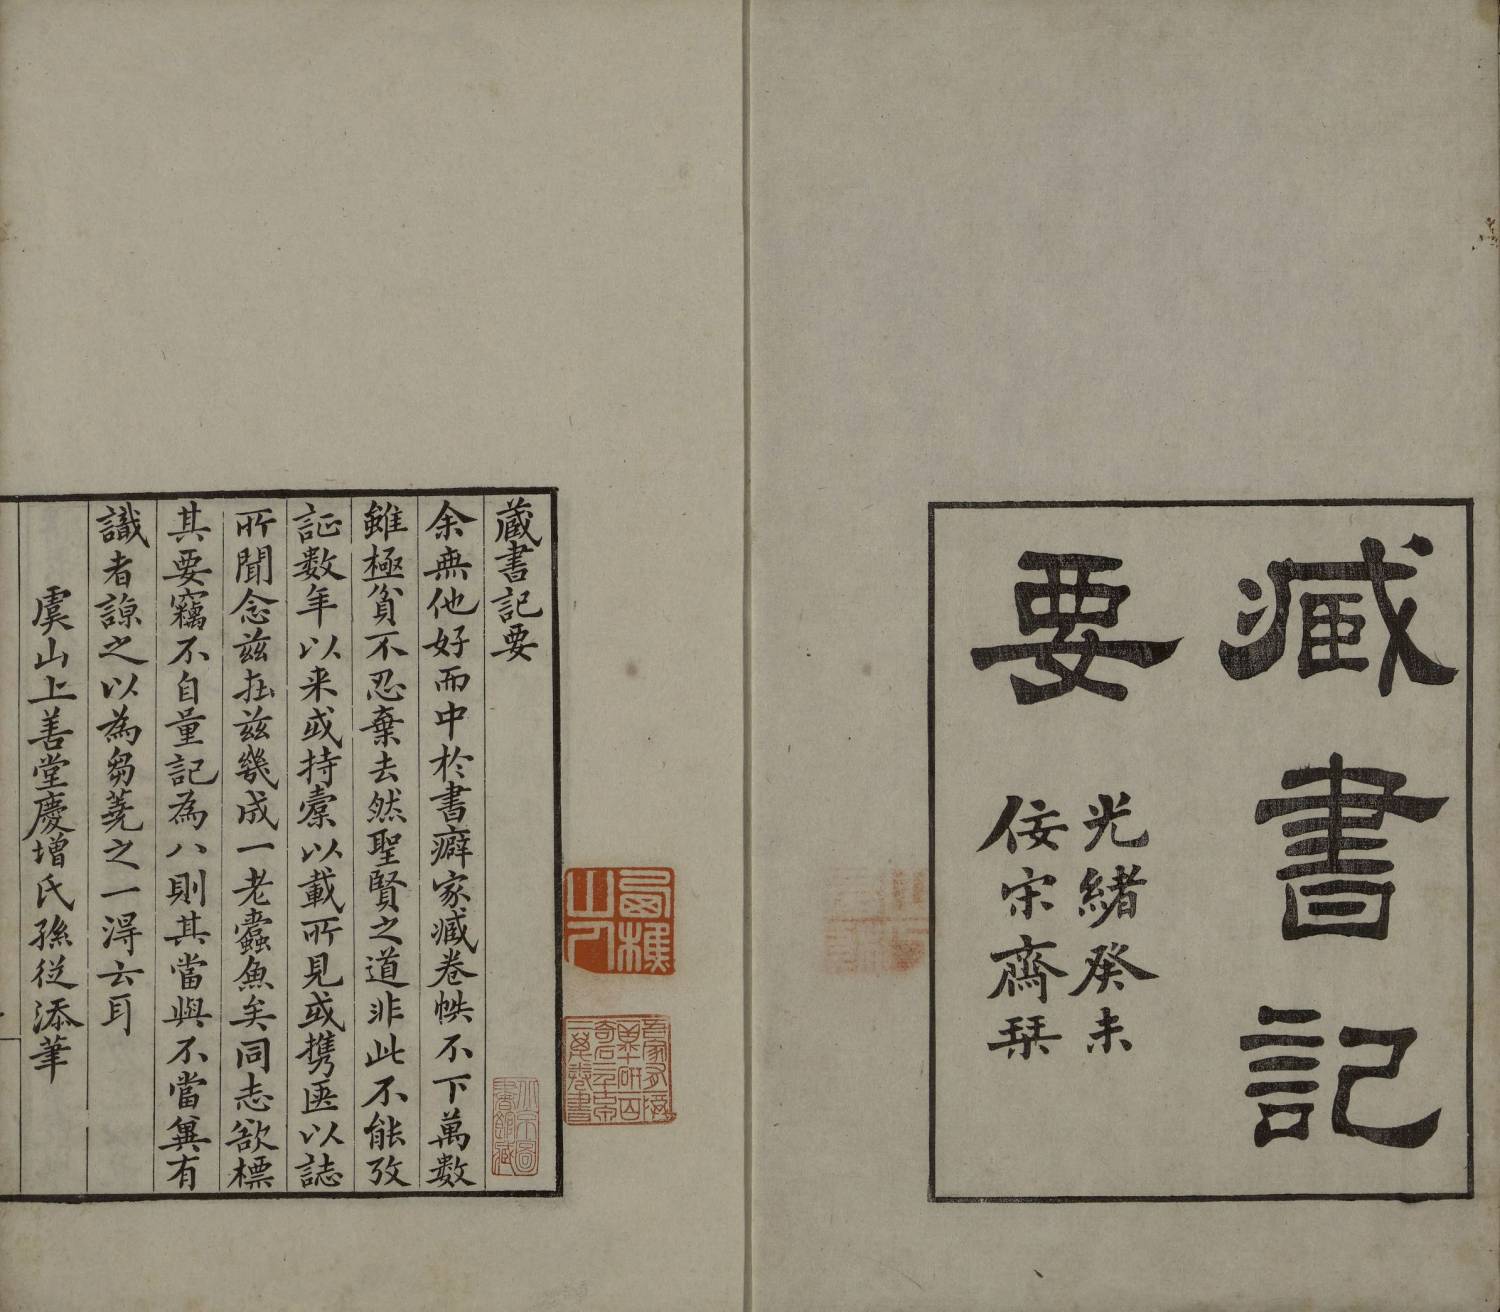 臧書記
要
光緒癸未
佞宋齋栞
蔵書記要
余無他好而中於書癖家臧卷帙不下萬數
雖極貧不忍棄去然聖賢之道非此不能攷
証数年以来或持槖以載所見或携匨以誌
所聞念兹在兹幾成一老蠹魚矣同志欲標
其要竊不自量記為八則其當與不當兾有
識者諒之以為芻蕘之一得云耳
虞山上善堂慶增氏孫従添筆